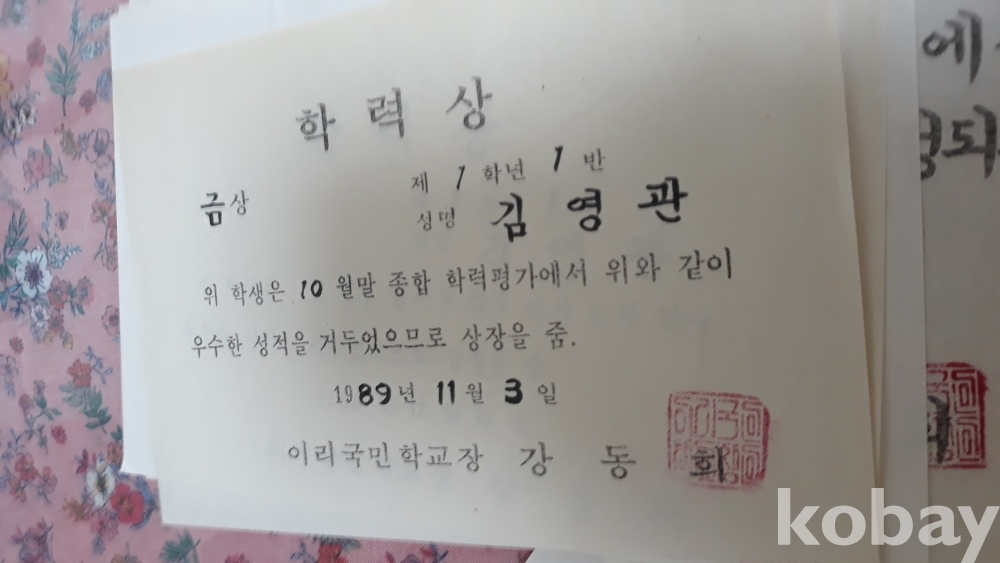 학력상
제 1 학년 1 반
금상
성명 김영관
위 학생은 10 월말 종합 학력평가에서 위와 같이
우수한 성적을 거두었으므로 상장을 줌.
1989년 11월 3일
이리국민학교장 강동회
에
되
kobay